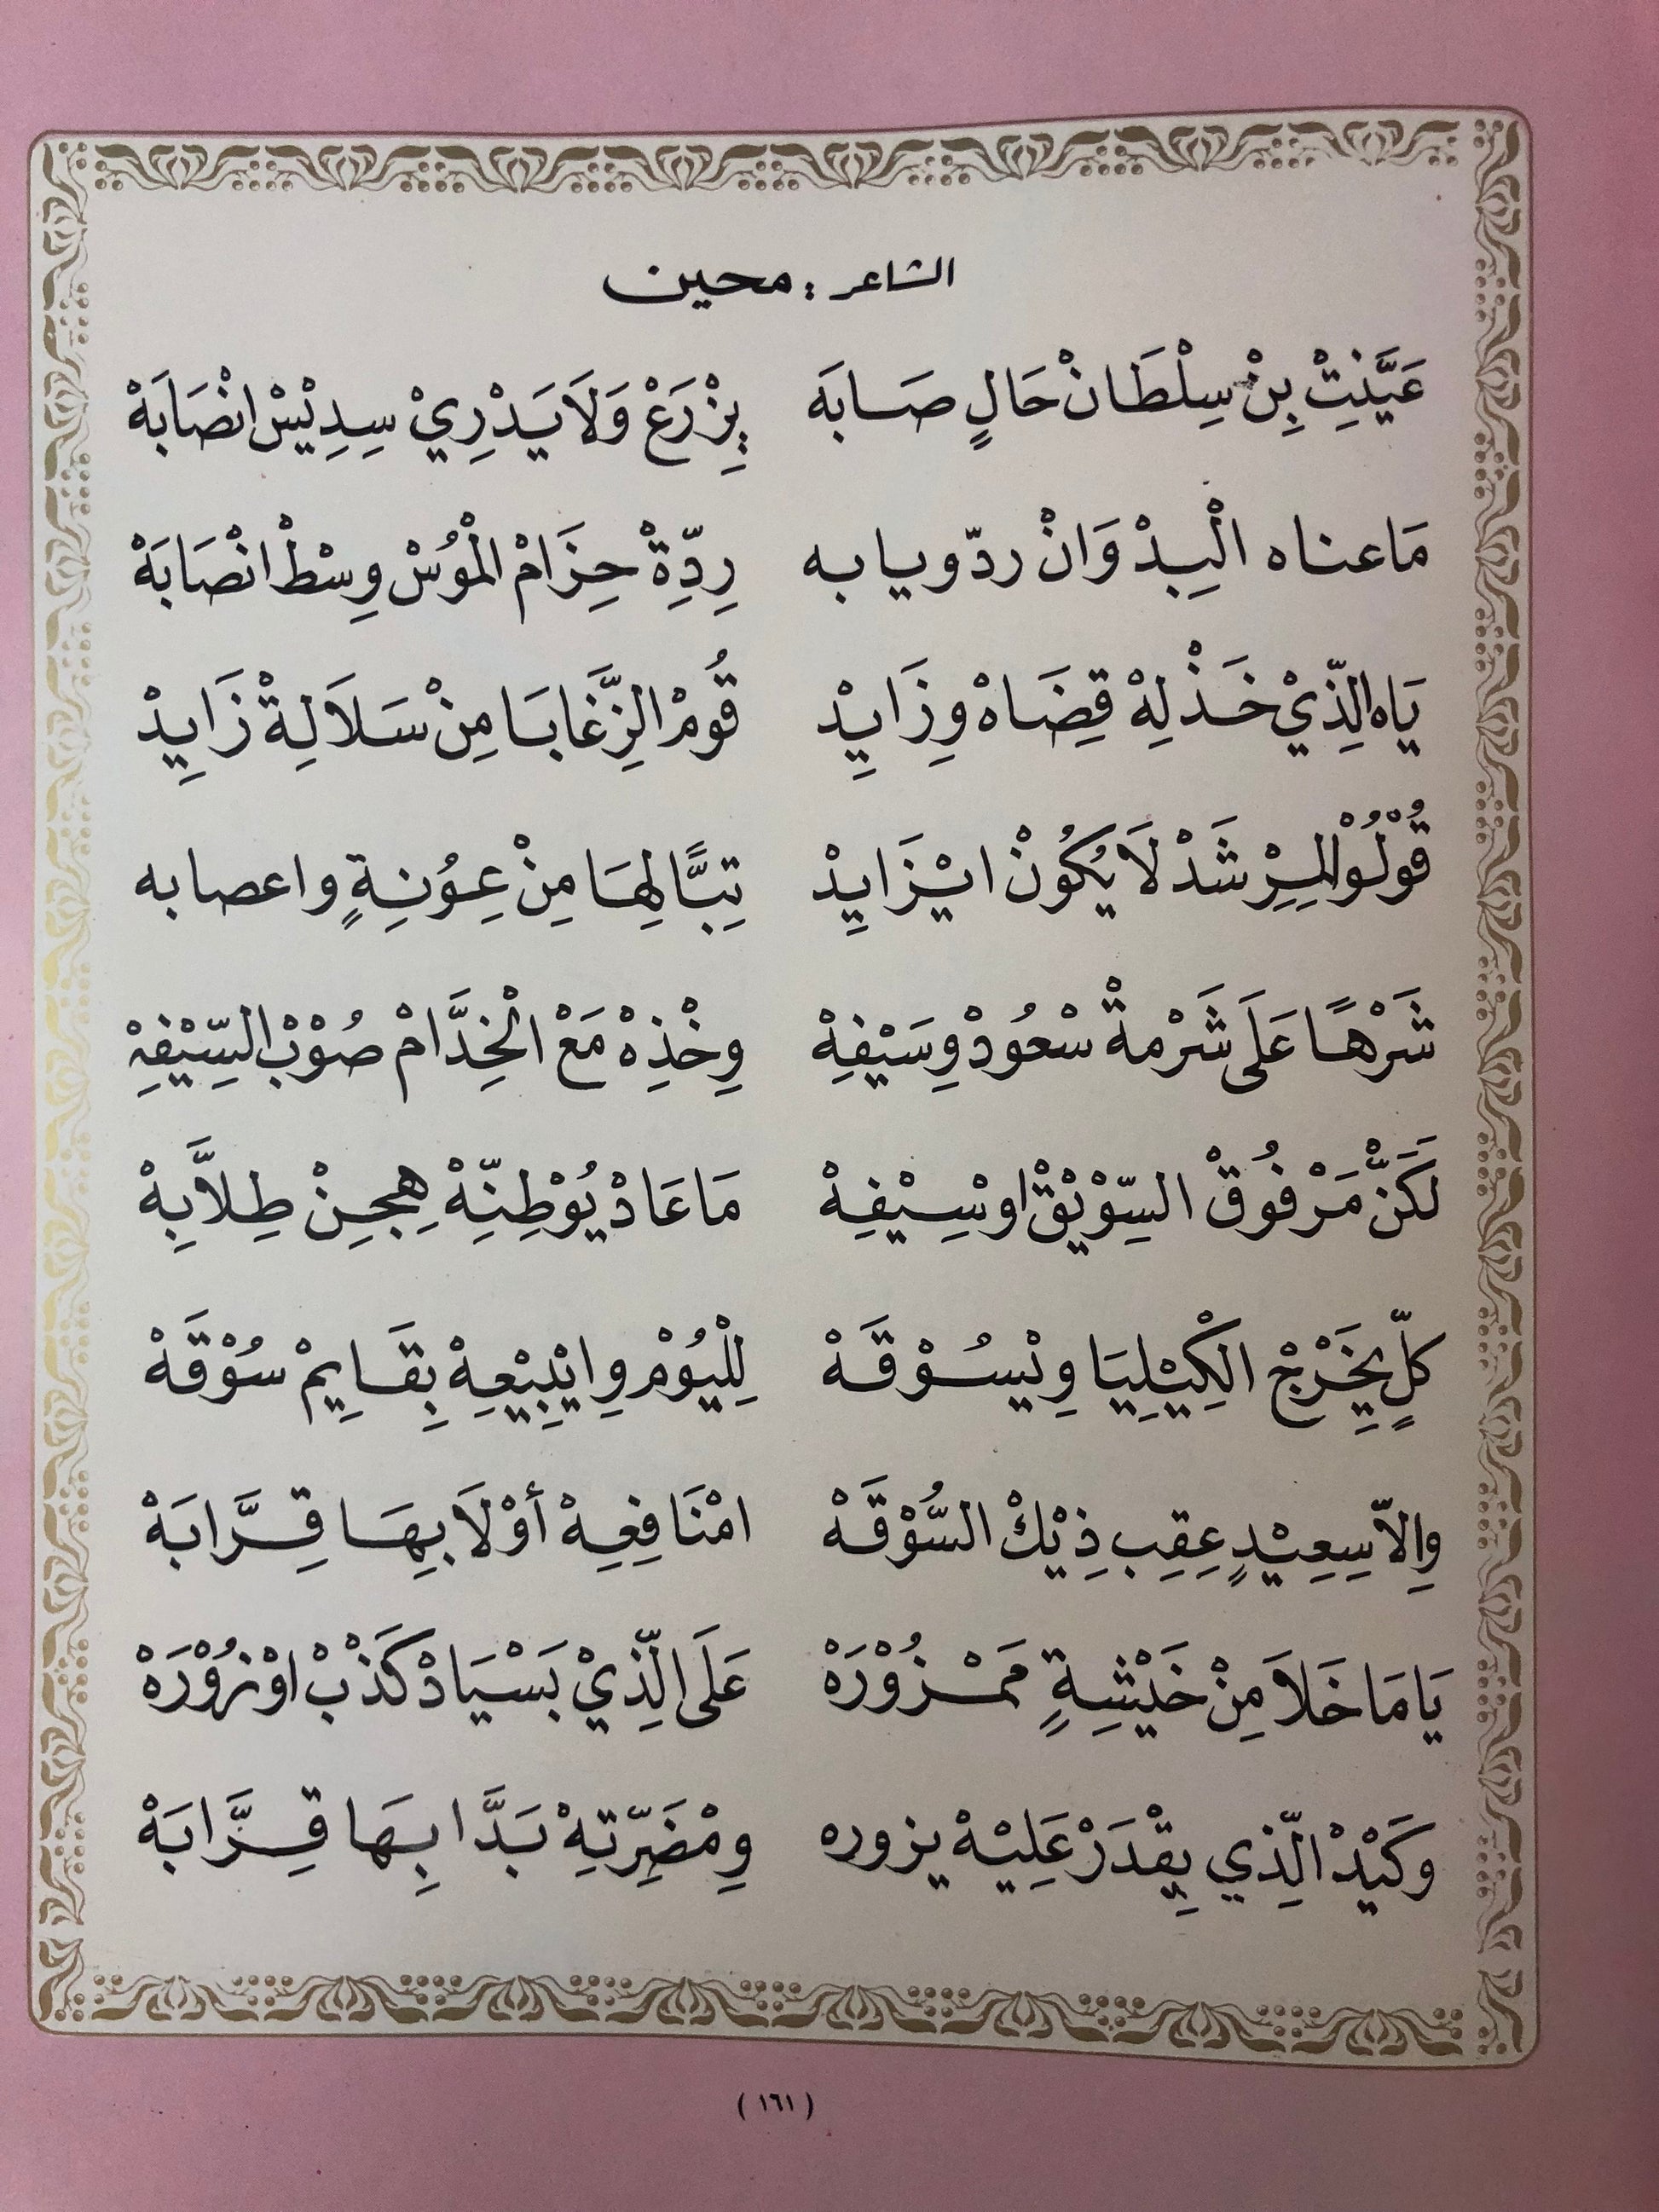 الشاعر : محين
عَيَّنِتْ بِنْ سِلْطَانْ حَالٍ صَابَه بِزْرَعْ وَلَا يَدْرِيْ سِدِيْسْ انْصَابَهْ
مَاعناه الْبِدْ وَانْ ردّويابه رِدِّةْ حِزَامْ الْمُوْسْ وِسْطْ انْصَابَهْ
يَاه الِّذِيْ خَذْلِهْ قِضَاهْ وِزَايِدْ قُومْ الزِّغَابَا مِنْ سَلَالِةْ زَايِدْ
قُوْلُوْا لِمِرْشَدْ لَا يُكُوْنْ ايْزَايِدْ تِبًّا لِهَا مِنْ عِوُنِةٍ واعصابه
شَرْهًا عَلَى شَرْمةْ سْعُودْ وِسَيْفِهْ وِخْذِهْ مَعْ الْخِدَّامْ صُوْبْ السِّيْفِهْ
لَكَنَّ مَرْفُوقْ السِّوْيْقْ اوْسِيْفِهْ مَاعَادْ يُوْطِنِّهْ هِجِنْ طِلَّابِهْ
كلٍّ يِخَرْجْ الْكِيْلِيَا وِنْسُوْقَهْ لِلْيُوْمْ وِايْبِيْعِهْ بِقَايِمْ سُوْقَهْ
وِالّا سِعِيْدٍ عِقِب ذِيْكْ السُّوْقَهْ امْنَافِعِهْ أوْلَا بِهَا قِرَّابَهْ
يَامَا خَلَا مِنْ خَيْشِةٍ مَمْزُوْرَهْ عَلَى الِّذِيْ بَسْيَادْ كَذْبْ اوْزُوْرَهْ
وكَيْدْ الِّذِي يِقْدَرْ عَلِيْهْ يزوره وِمْضَرِّتِهْ بَدَّا بِهَا قِزَّابَهْ
( ١٦١ )